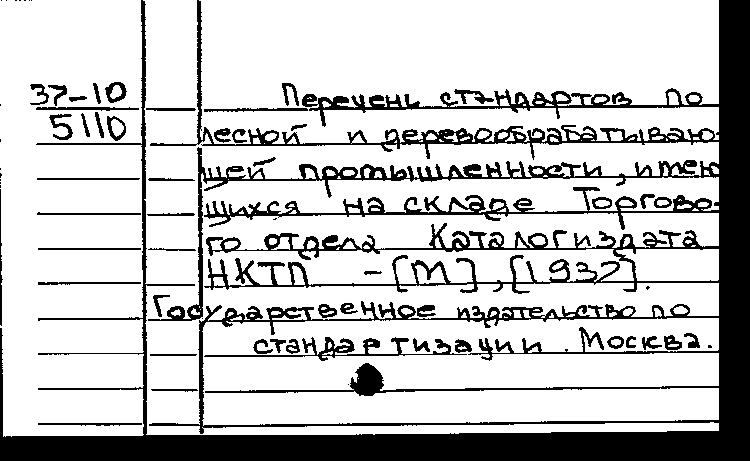 37-10 Перечень стандартов по
5110 лесной и деревообрабатываю-
щей промышленности, имею
щихся на складе Торгово-
го отдела Каталогиздата
НКТП - [М], [1937].
Государственное издательство по
стандартизации. Москва.